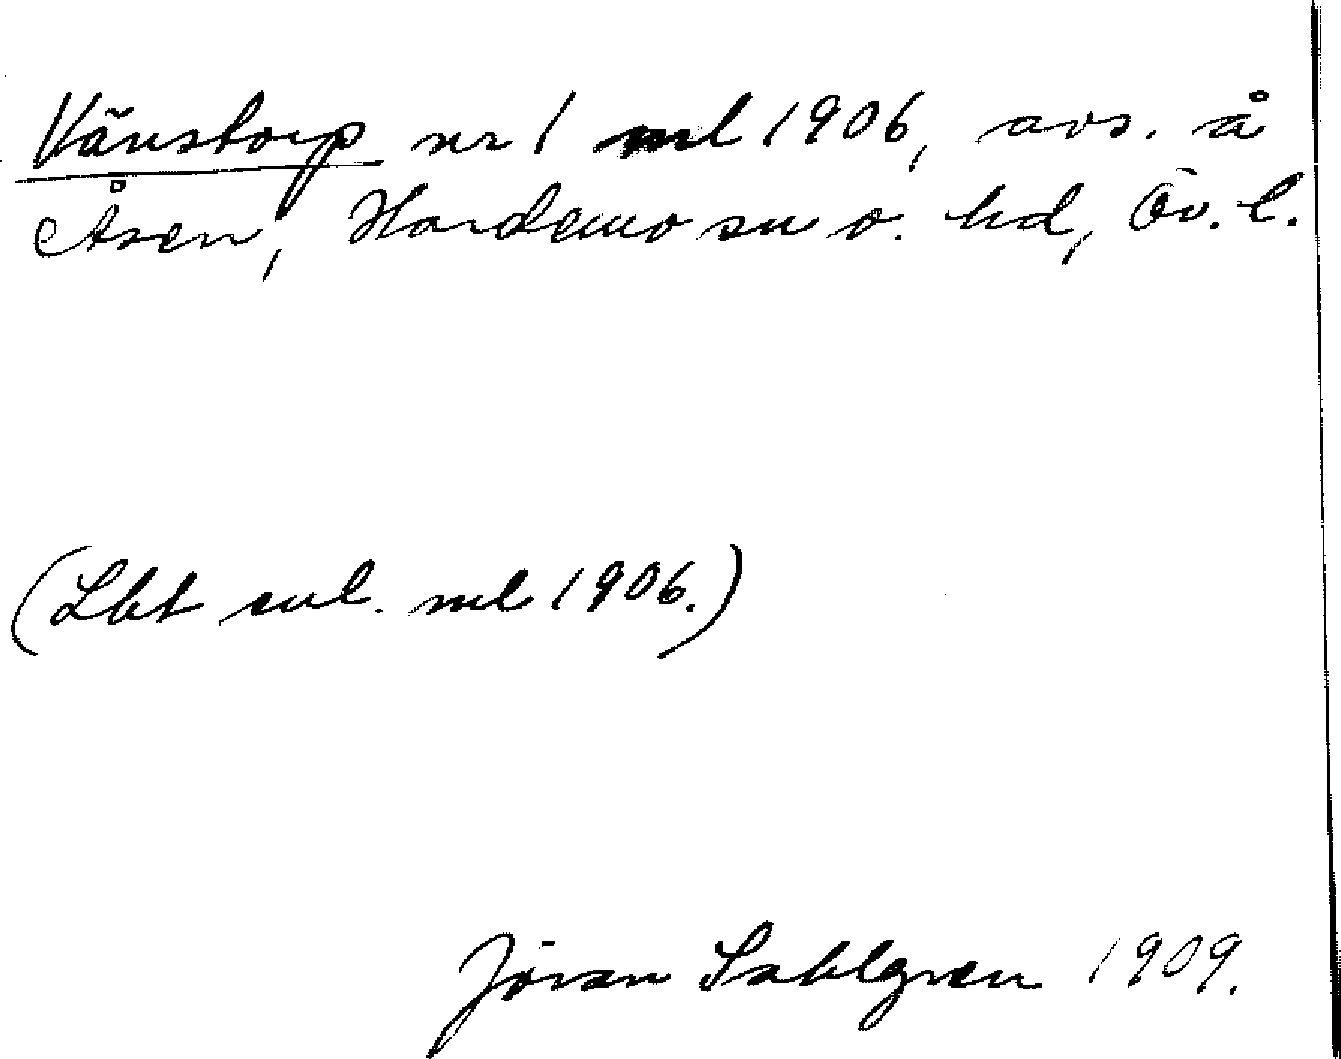 Vänstorp nr 1 ml 1906, avs. å
Åsen, Hardemo sn o. hd, Ör. l.
(Lbt enl. ml 1906.)
Jöran Sahlgren 1909.